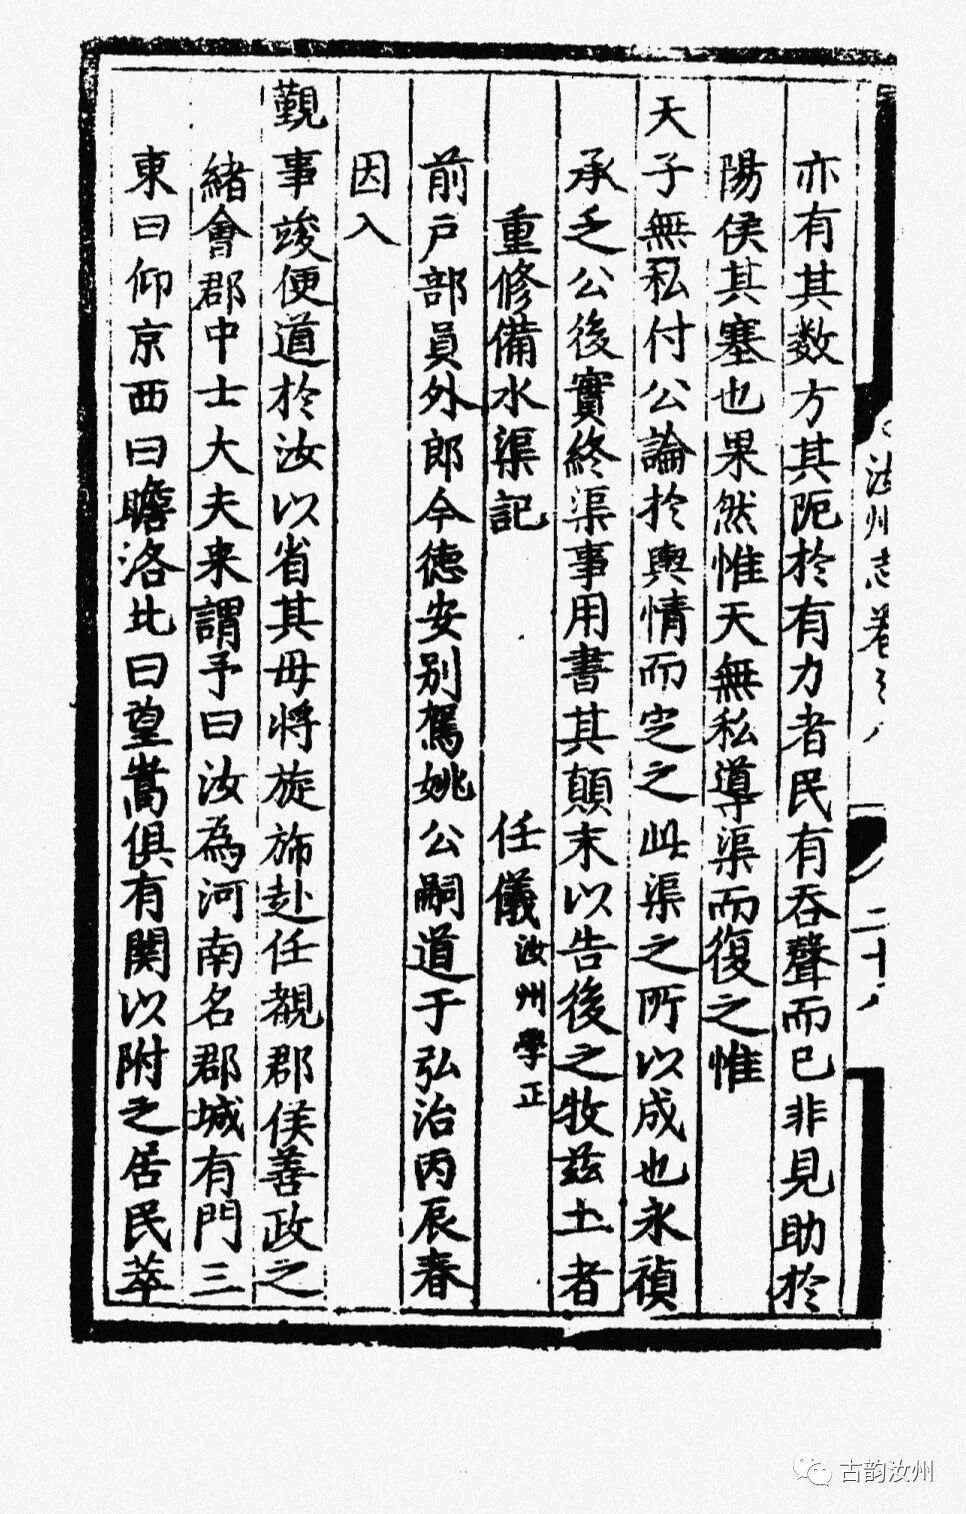 汝州志卷之八
二十八
亦有其数方其阨於有力者民有吞聲而已非見助於
陽侯其塞也果然惟天無私導渠而復之惟
天子無私付公論於輿情而定之此渠之所以成也永禎
承乏公後實終渠事用書其顛末以告後之牧茲土者
重修備水渠記 任儀汝州學正
前戸部員外郎今德安別駕姚公嗣道于弘治丙辰春
因入
覲事竣便道於汝以省其母将旋斾赴任覩郡侯善政之
緒會郡中士大夫来謂予曰汝為河南名郡城有門三
東曰仰京西曰瞻洛北曰望嵩俱有関以附之居民萃
古韵汝州